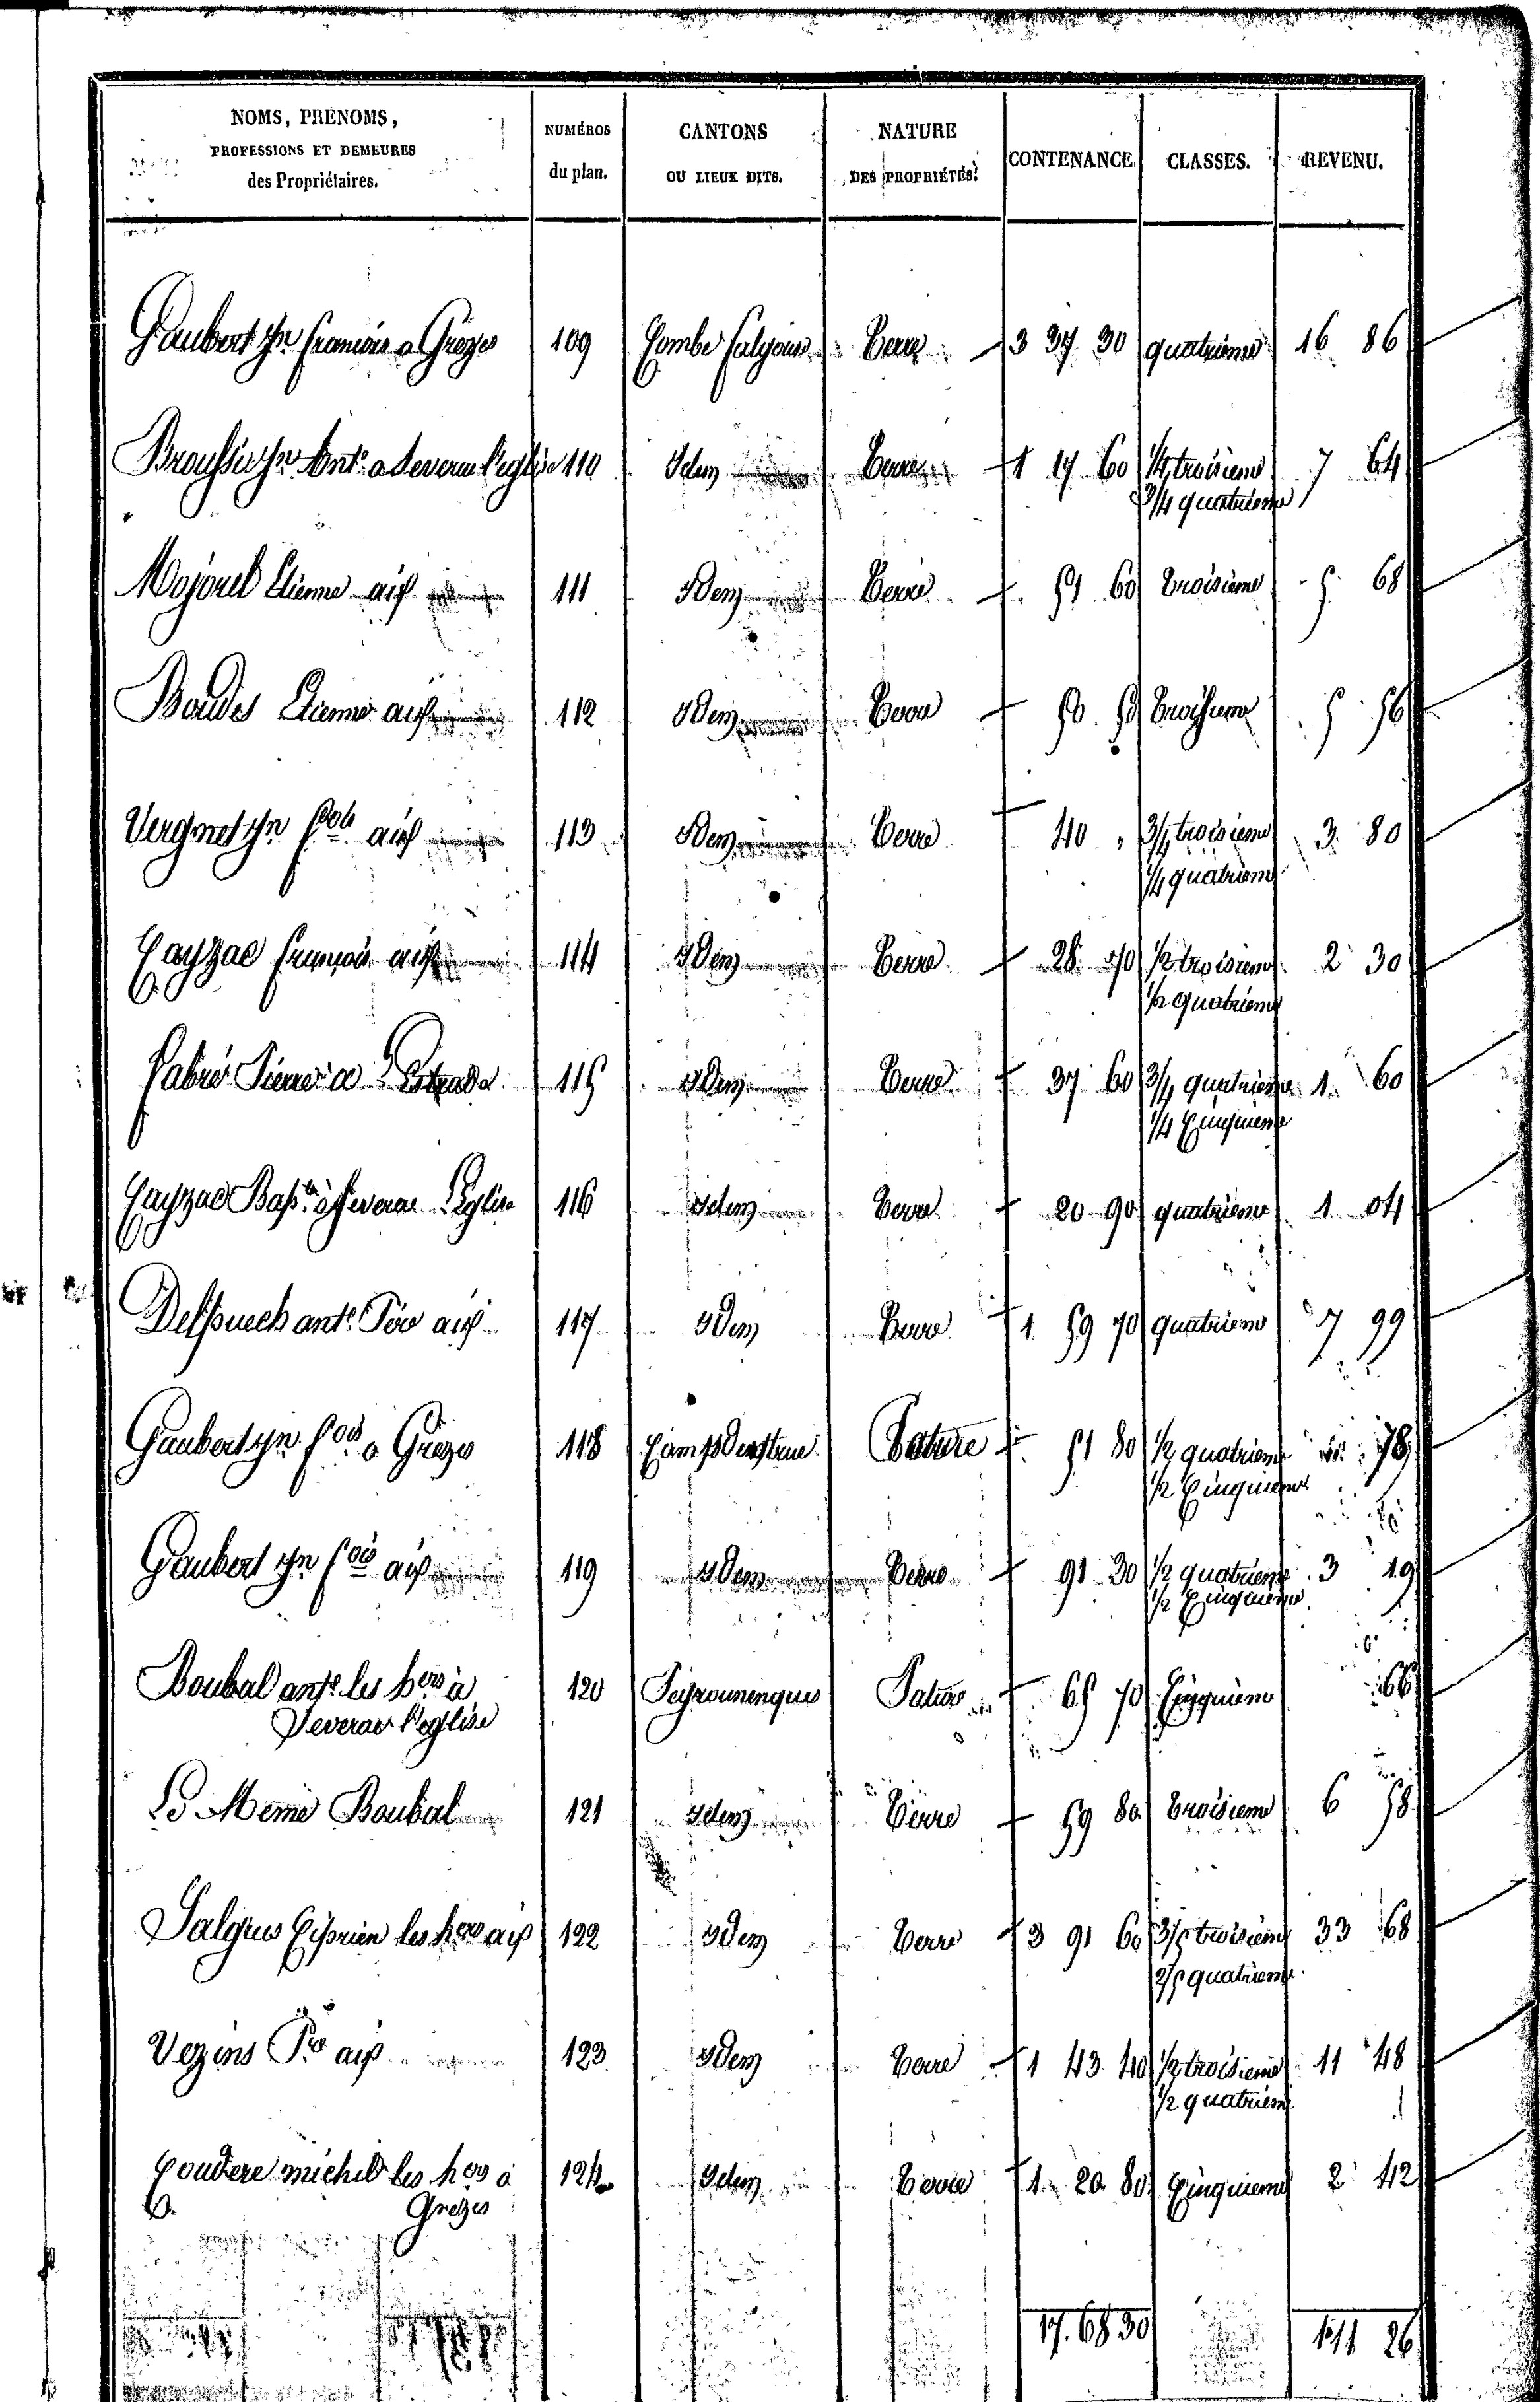 NOMS, PRENOMS,
PROFESSIONS ET DEMEURES
des Propriétaires.
NUMÉROS
du plan.
CANTONS
OU LIEUX DITS.
NATURE
DES PROPRIÉTÉS.
CONTENANCE.
CLASSES.
REVENU.
Gaubert Jn francois a Grèzes 109 Combe salgous Terre 3 37 30 quatrieme 16 86
Broussi Jn Ante a Severac l'eglise 110 Idem Terre 1 17 60 1/4 troisieme 7 64
3/4 quatrieme
Majorel Etienne aif 111 Idem Terre 51 60 troisieme 5 68
Boudes Etienne aif 112 Idem Terre 50 50 troisieme 5 56
Vergnet Jn fois aif 113 Idem Terre 40 " 3/4 troisieme 3 80
1/4 quatrieme
Cayzac françois aif 114 Idem Terre 28 70 1/2 troisieme 2 30
1/2 quatrieme
fabre Pierre a 115 Idem Terre 37 60 3/4 quatrieme 1 60
1/4 Cinquieme
Cayzac Baste à Severac L'Eglise 116 Idem Terre 20 90 quatrieme 1 04
Delpuech ante Pre aif 117 Idem Terre 1 59 70 quatrieme 7 99
Gaubert Jn fois a Grèzes 118 Pature 51 80 1/2 quatrieme 78
1/2 Cinquieme
Gaubert Jn fois aif 119 Idem Terre 91 30 1/2 quatrieme 3 19
1/2 Cinquieme
Boubal ante les hers à 120 Peyrounenques Pature 65 70 Cinquieme 66
Severac l'eglise
Le Meme Boubal 121 Idem Terre 59 80 troisieme 6 58
Salgues Ciprien les hers aif 122 Idem Terre 3 91 60 3/5 troisieme 33 68
2/5 quatrieme
Vezins Pre aif 123 Idem Terre 1 43 40 1/2 troisieme 11 48
1/2 quatrieme
Couderc michel les hers a 124 Idem Terre 1 20 80 Cinquieme 2 42
Grezes
17. 68 30 111 26